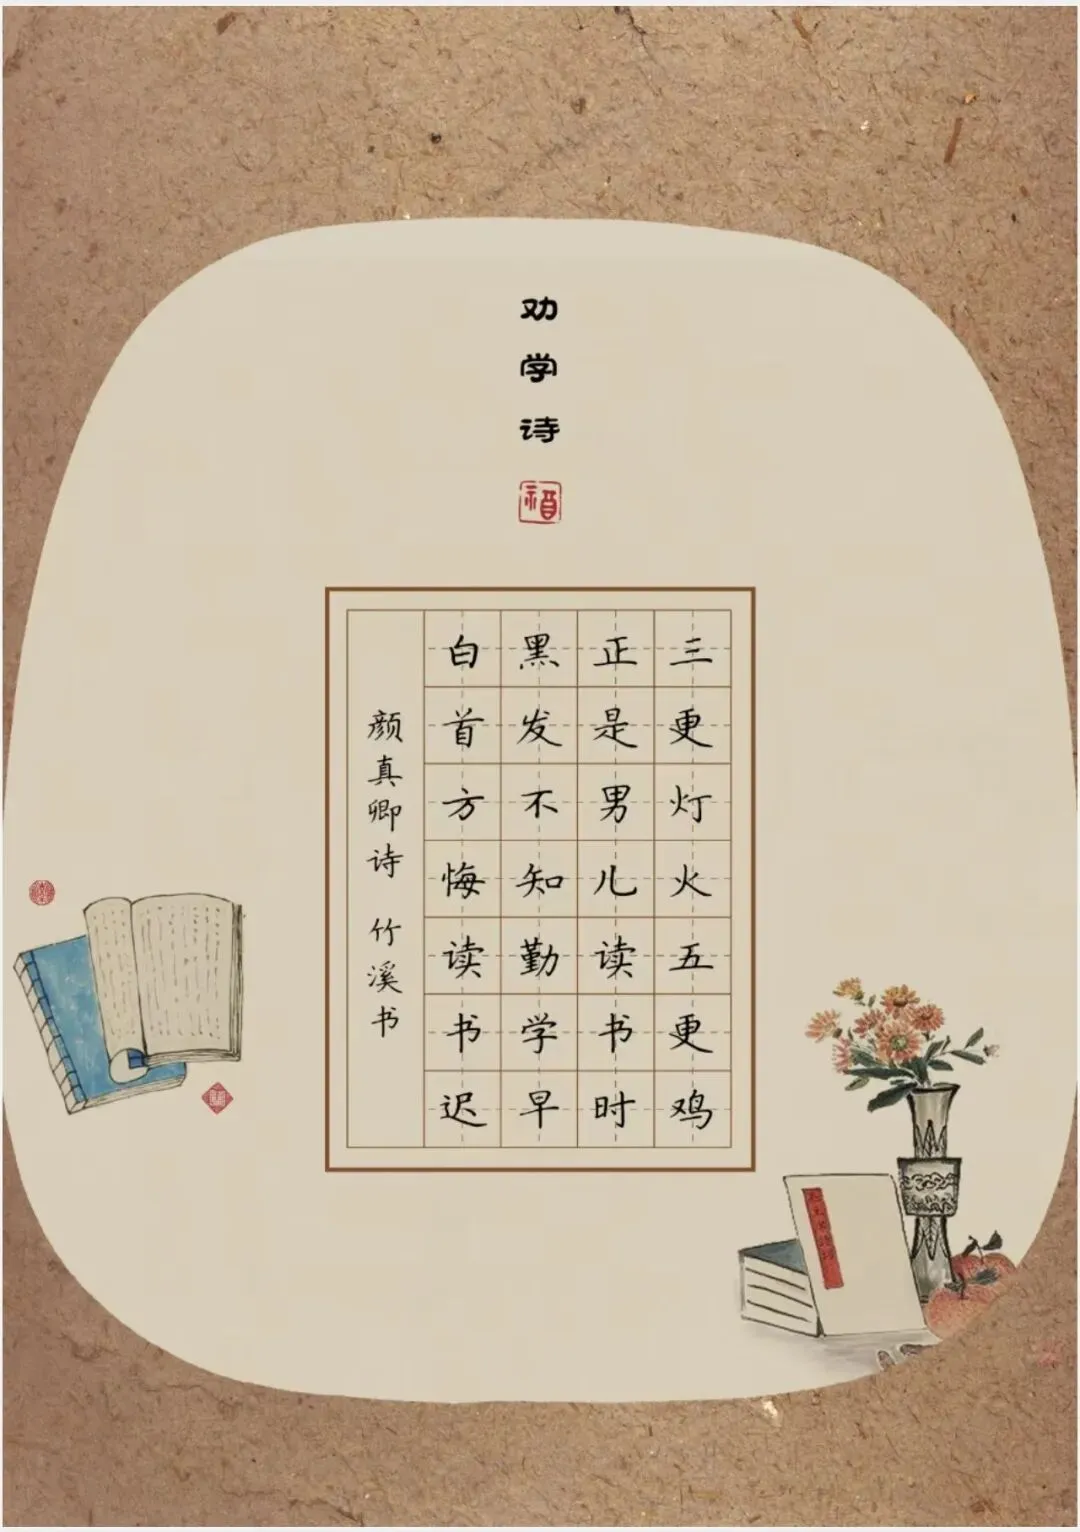 劝学诗
三更灯火五更鸡
正是男儿读书时
黑发不知勤学早
白首方悔读书迟
颜真卿诗 竹溪书